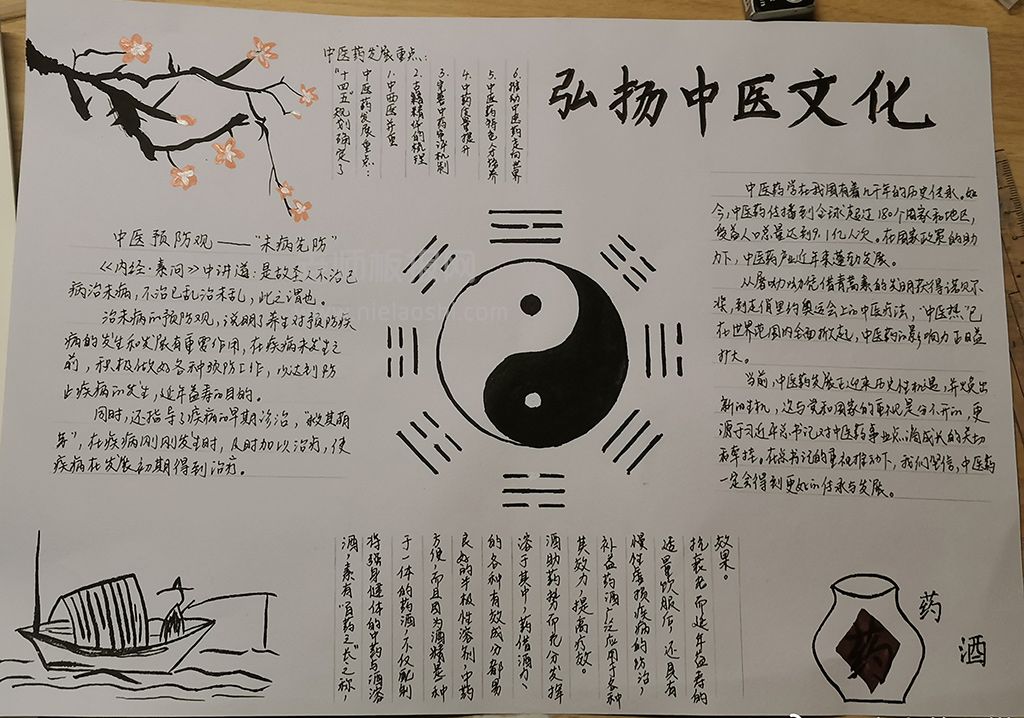 弘扬中医文化
中医药发展重点：
"十四五"规划确定了
中医药发展重点：
1.中西医并重
2.古籍精华的梳理
3.完善中药审评机制
4.中药质量提升
5.中医药特色人才培养
6.推动中医药走向世界
中医预防观——"未病先防"
《内经·素问》中讲道：是故圣人不治已
病治未病，不治已乱治未乱，此之谓也。
治未病的预防观，说明了养生对预防疾
病的发生和发展有重要作用，在疾病未发生之
前，积极做好各种预防工作，以达到防
止疾病的发生，延年益寿的目的。
同时，还指导了疾病的早期治治，"救其萌
芽"，在疾病刚刚发生时，及时加以治疗，使
疾病在发展初期得到治疗。
中医药学在我国有着几千年的历史传承。如
今，中医药传播到全球超过180个国家和地区，
受益人口总量达到9.1亿人次。在国家政策的助
力下，中医药产业近年来蓬勃发展。
从屠呦呦凭借青蒿素的发明获得诺贝尔
奖，到走俏里约奥运会上的中医疗法，"中医热"已
在世界范围内全面掀起，中医药的影响力正日益
扩大。
当前，中医药发展正迎来历史性机遇，并焕发出
新的生机，这与党和国家的重视是分不开的，更
源于习近平总书记对中医药事业点滴成长的关切
和牵挂。在总书记的重视推动下，我们坚信，中医药
一定会得到更好的传承与发展。
酒，素有"百药之长"之称，
将强身健体的中药与酒溶
于一体的药酒，不仅配制
方便，而且因为酒精是一种
良好的半极性溶剂，中药
的各种有效成分都易
溶于其中，药借酒力、
酒助药势而充分发挥
其效力，提高疗效。
补益药酒广泛应用于各种
慢性虚损疾病的防治，
适量饮服，还具有
抗衰老而延年益寿的
效果。
药
药
酒
nielaoshi.com